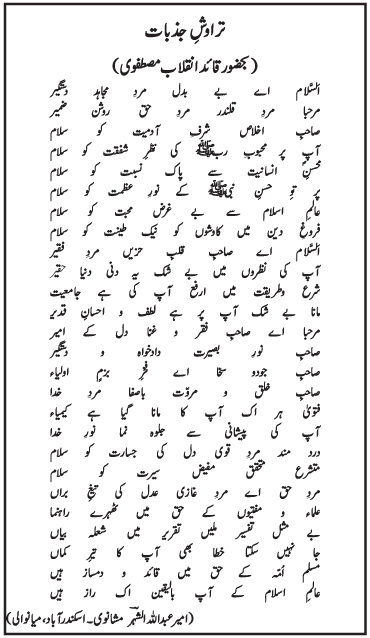 تراوشِ جذبات
(بحضور قائد انقلاب مصطفوی)
السّلام اے بے بدل مردِ مجاہد دستگیر
مرحبا مردِ قلندر مردِ حق روشن ضمیر
صاحبِ اخلاص شرفِ آدمیت کو سلام
آپ پر محبوبِ ربﷺ کی نظرِ شفقت کو سلام
محسنِ انسانیت سے پاک نسبت کو سلام
پر توِ حسنِ نبیﷺ کے نورِ عظمت کو سلام
عالمِ اسلام سے بے غرض محبت کو سلام
فروغِ دین میں کاوشوں کو نیک طینت کو سلام
السّلام اے صاحبِ قلبِ حزیں مردِ فقیر
آپ کی نظروں میں بے شک یہ دنی دنیا حقیر
شرع وطریقت میں ارفع آپ کی ہے جامعیت
مانا بے شک آپ پر ہے لطف و احسانِ قدیر
مرحبا اے صاحبِ فقر و غنا دل کے امیر
صاحبِ نورِ بصیرت دادخواہ و دستگیر
صاحبِ جودو سخا اے فخرِ بزمِ اولیاء
صاحبِ خلق و مروّت باصفا مردِ خدا
فتویٰ ہر اک آپ کا مانا گیا ہے کیمیاء
آپ کی پیشانی سے جلوہ نما نورِ خدا
درد مند مردِ قوی دل کی جسارت کو سلام
متشرع متحقق مفیضِ سیرت کو سلام
مردِ حق اے مردِ غازی عدل کی تیغِ براں
علماء و مفتیوں کے حق میں ٹھہرے راہنما
بے مثل تفسیر میں تقریر میں شعلہ بیاں
جا نہیں سکتا خطا بھی آپ کا تیرِ کماں
مسلم اُمّہ کے حق میں قائد و دمساز ہیں
عالمِ اسلام کے آپ بالیقین اک راز ہیں
(امیر عبداللہ الشہرؔ مشانوی۔ اسکندرآباد، میانوالی)